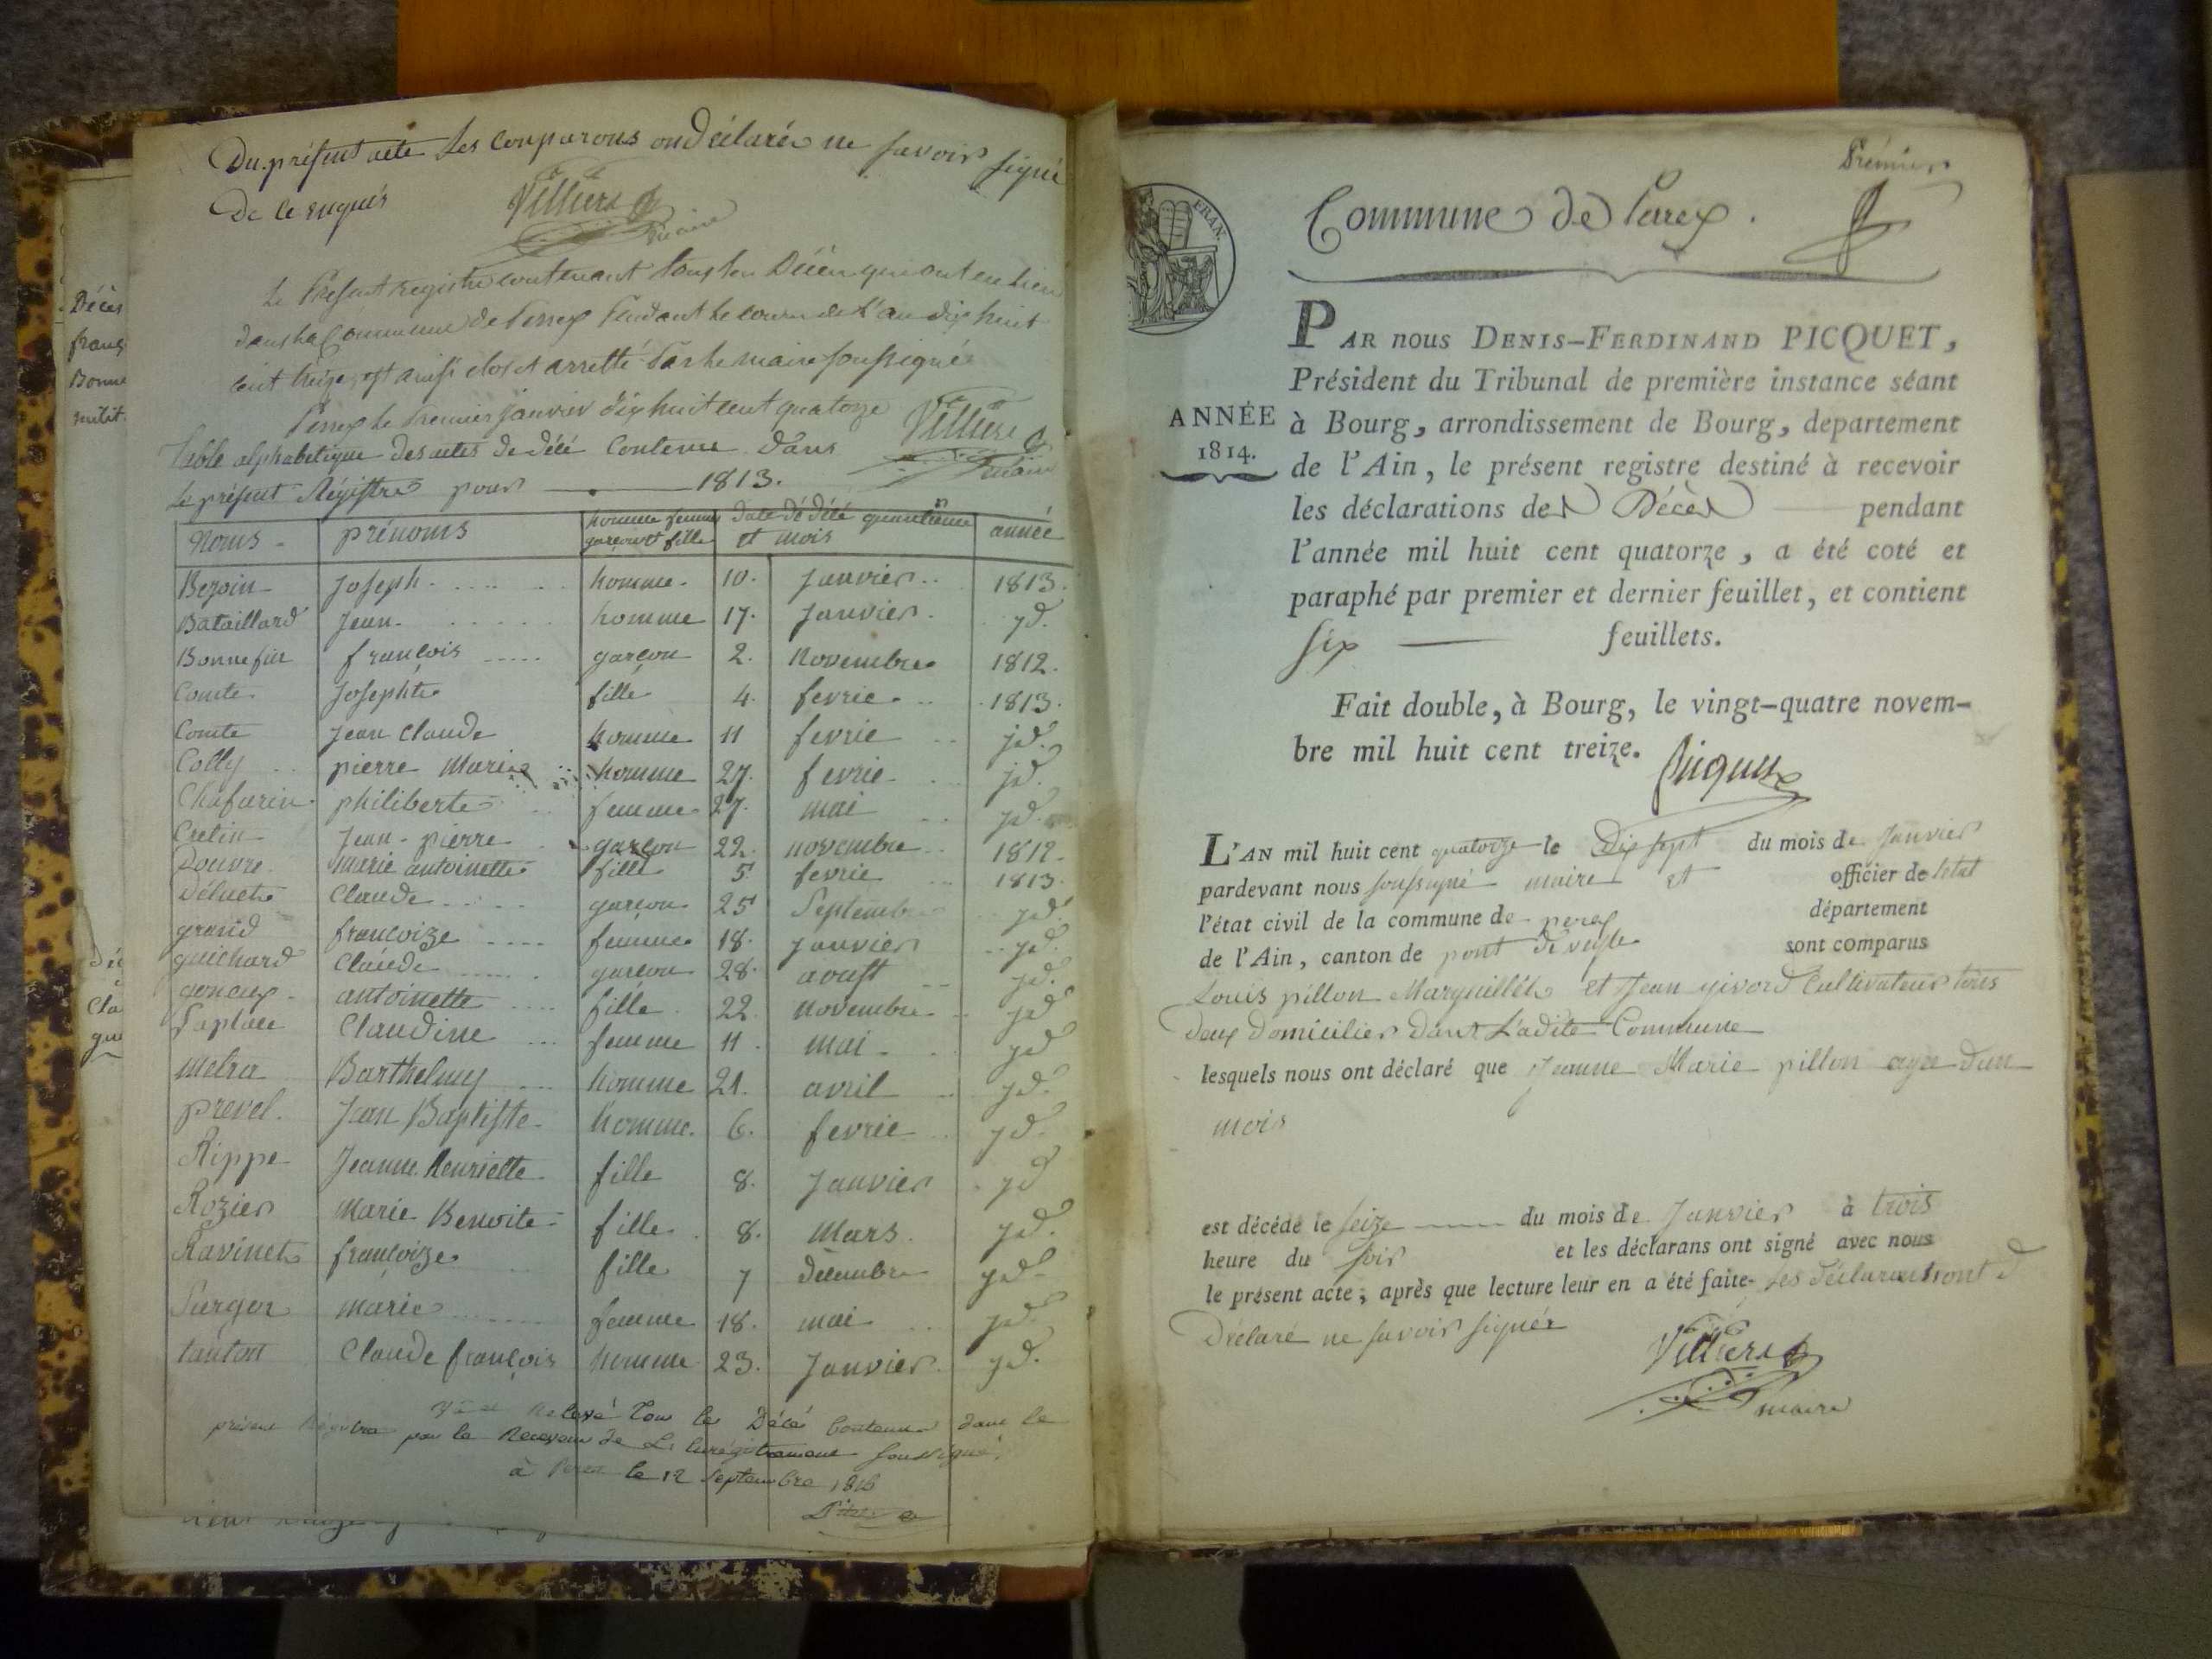 Du présent acte Les Comparans on Déclaré ne savoir signé
De ce enquis
Villiers
maire
Le Present registre contenant tous les Décès qui ont eu lieu
dans la Commune de Perrex Pendant le cours de L'an dix huit
cent treize, est ainsi clos et arretté Par le maire soussigné
Perrex le Premier janvier dix huit cent quatorze
Villiers
maire
Table alphabetique des actes de décé Contenue dans
Le présent Régistre pour 1813.
Noms prénoms homme femme garçon et fille date dé décé quantième et mois année
Bezoin Joseph homme 10. Janvier 1813.
Bataillard Jean homme 17. Janvier yd.
Bonnefin françois garçon 2. Novembre 1812.
Comte Josephte fille 4. fevrie 1813.
Comte Jean Claude homme 11 fevrie yd.
Colly pierre Marie homme 27. fevrie yd.
Chafarin philiberte femme 27. mai yd.
Cretin Jean-pierre garçon 22. novembre 1812.
Douvre Marie antoinette fille 5. fevrie 1813.
Déluets Claude garçon 25 Septembre yd.
grand françoize femme 18. janvier yd.
guichard Claude garçon 28. aoust yd.
goneux antoinette fille 22. novembre yd
Laplace Claudine femme 11. mai yd
Melra Barthelmy homme 21. avril yd.
prevel. Jean Baptiste homme. 6. fevrie yd.
Rippe Jeanne Henriette fille 8. Janvier yd
Rozier Marie Benoite fille. 8. Mars. yd.
Ravinet françoize fille 7 décembre yd.
Surgon marie femme 18. mai yd.
tanton Claude françois homme 23. Janvier yd.
Relevé Tous les Décès Contenus dans le
présent Régistre par le Receveur de L'enrégistrement Soussigné.
à Perex le 12 Septembre
Décès
franç
Bonne
milit
Cla
gui
Prémier
Commune de Perex.
FRAN.
ANNÉE
1814.
PAR nous DENIS-FERDINAND PICQUET,
Président du Tribunal de première instance séant
à Bourg, arrondissement de Bourg, departement
de l'Ain, le présent registre destiné à recevoir
les déclarations des Décès pendant
l'année mil huit cent quatorze, a été coté et
paraphé par premier et dernier feuillet, et contient
six feuillets.
Fait double, à Bourg, le vingt-quatre novem-
bre mil huit cent treize.
Picquet
L'AN mil huit cent quatorze le Dix sept du mois de Janvier
pardevant nous soussigné maire et officier de letat
l'état civil de la commune de perex département
de l'Ain, canton de pont de veyle sont comparus
Louis pillon Marguillé et Jean givord Cultivateur tous
deux domicilier dans Ladite Commune
lesquels nous ont déclaré que Jeanne Marie pillon agée dun
mois
est décédé le seize du mois de Janvier à trois
heure du soir et les déclarans ont signé avec nous
le présent acte, après que lecture leur en a été faite les déclarant ont d
Déclaré ne savoir signér
Villiers
maire